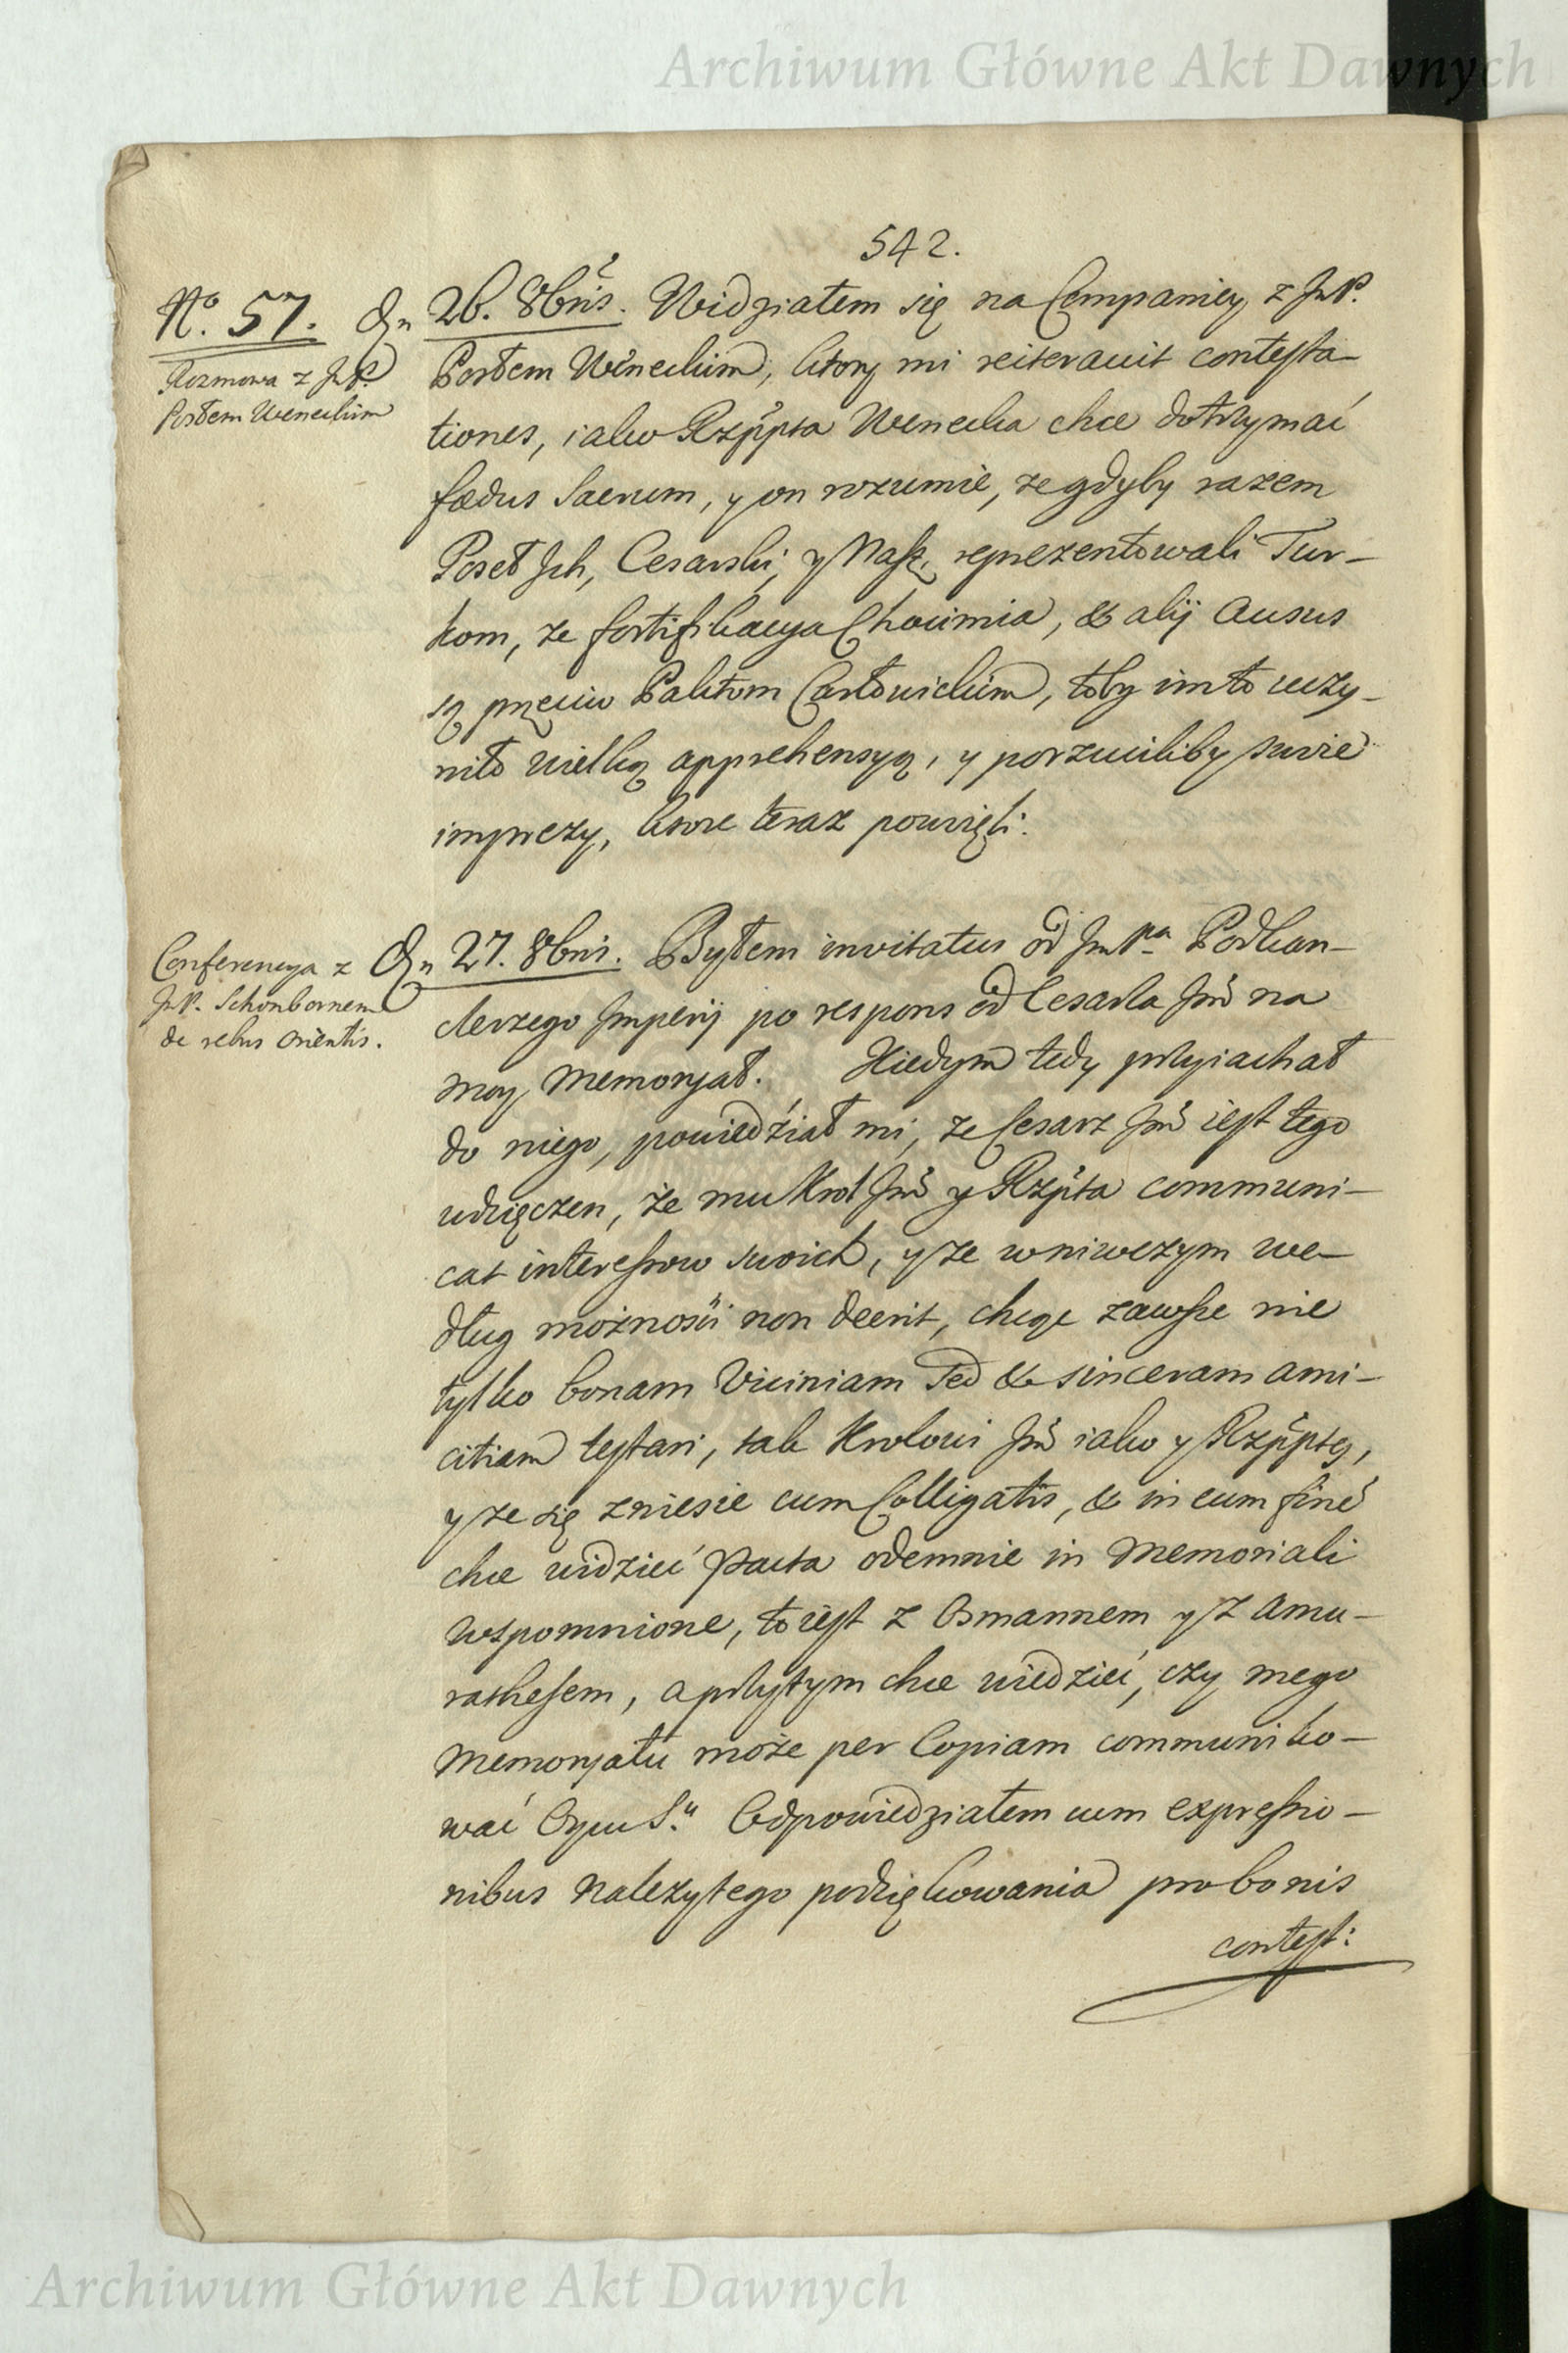 Archiwum Główne Akt Dawnych
542.
No. 57.
Rozmowa z JmP.
Posłem Weneckim
Dn 26. 8bris. Widziałem się na Compániey z JmP.
Posłem Weneckim, ktory mi reiteravit contesta-
tiones, iako Rzppta Wenecka chce dotrzymać
fœdus Sacrum, y on rozumie, że gdyby razem
Poseł Ich, Cesarski, y Nasz, reprezentowali Tur-
kom, że fortifikacya Chocimia, & alij ausus
są przeciw Paktom Carłowickim, toby im to uczy-
niło wielką apprehensyą, y porzuciliby swoie
imprezy, ktore teraz powzięli.
Conferencya z
JmP. Schonbornem
de rebus orientis.
Dn 27. 8bris. Byłem invitatus od JmPa Podkan-
clerzego Imperij po respons od Cesarza Jmci na
moy Memoryał. Kiedym tedy przyiachał
do niego, powiedział mi, że Cesarz Jmć iest tego
wdzięczen, że mu Krol Jmć y Rzpta communi-
cat interessow swoich, y że w niwczym we-
dług możności non deerit, chcąc zawsze nie
tylko bonam Viciniam sed & sinceram ami-
citiam testari, tak Krolowi Jmci iako y Rzppty,
y że się zniesie cum Colligatis, & in eum finem
chce widzieć Pacta odemnie in Memoriali
wspomnione, to iest z Osmannem y z Amu-
rathesem, a przytym chce wiedzieć, czy mego
Memoryału może per Copiam communiko-
wać Oycu S. Odpowiedziałem cum expressio-
nibus należytego podziękowania pro bonis
contest:
Archiwum Główne Akt Dawnych